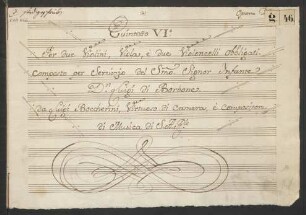 Quintetto VI.º
Per due Violini, Viola, e due Violoncelli obligati
Composto per Servizio del Smo. Signor Infante
Dn. Luigi di Borbone
da Luigi Boccherini, Virtuoso di Camera, e compositor
di Musica di S.A.R.
2
46.